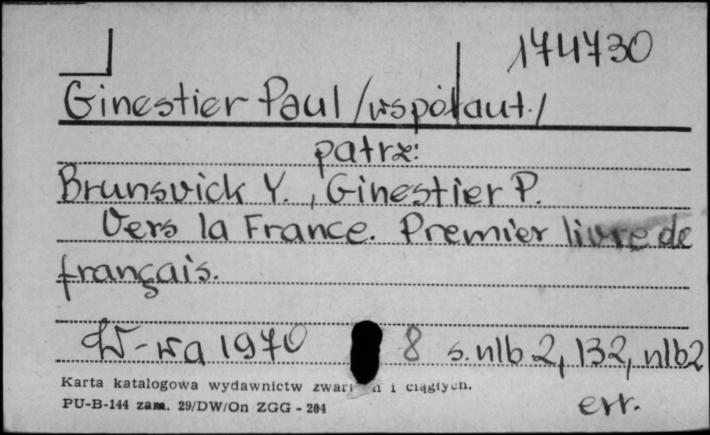 174730
Ginestier Paul /współaut./
patrz:
Brunsvick Y., Ginestier P.
Vers la France. Premier livre de
français.
W-wa 1970 8 s. nlb 2, 132, nlb 2
Karta katalogowa wydawnictw i ciągłych.
PU-B-144 zam. 29/DW/On ZGG - 204
err.